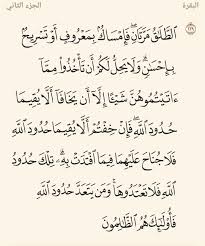 البقرة الجزء الثاني
ٱلطَّلَٰقُ مَرَّتَانِ فَإِمْسَاكُۢ بِمَعْرُوفٍ أَوْ تَسْرِيحُۢ ٢٢٩
بِإِحْسَٰنٍ وَلَا يَحِلُّ لَكُمْ أَن تَأْخُذُوا۟ مِمَّآ
ءَاتَيْتُمُوهُنَّ شَيْـًٔا إِلَّآ أَن يَخَافَآ أَلَّا يُقِيمَا
حُدُودَ ٱللَّهِ فَإِنْ خِفْتُمْ أَلَّا يُقِيمَا حُدُودَ ٱللَّهِ
فَلَا جُنَاحَ عَلَيْهِمَا فِيمَا ٱفْتَدَتْ بِهِۦ تِلْكَ حُدُودُ
ٱللَّهِ فَلَا تَعْتَدُوهَا وَمَن يَتَعَدَّ حُدُودَ ٱللَّهِ
فَأُو۟لَٰٓئِكَ هُمُ ٱلظَّٰلِمُونَ